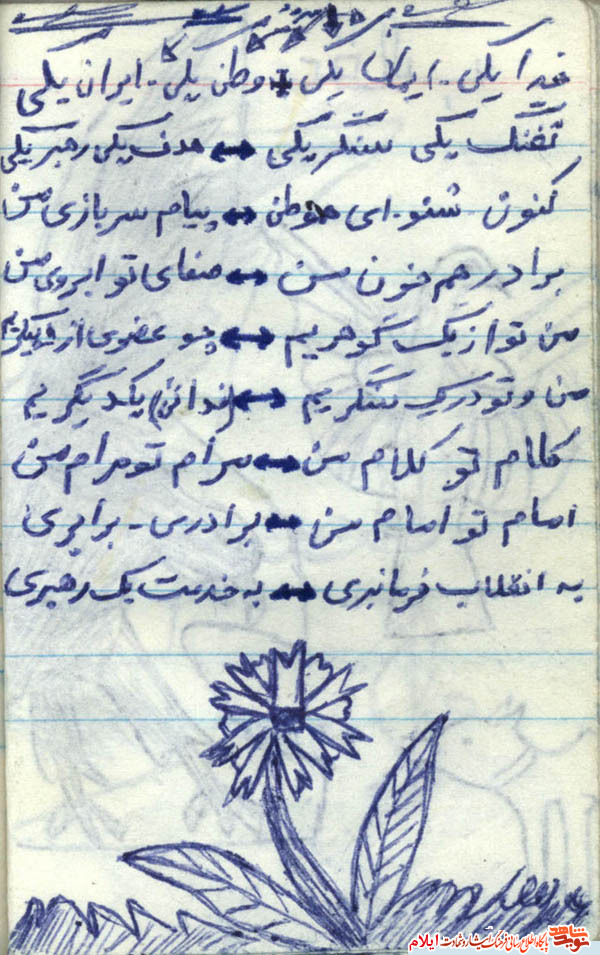 خدا یکی - ایمان یکی - وطن یکی - ایران یکی
تفنگ یکی سنگر یکی ↔ هدف یکی رهبر یکی
کنون شنو - ای هموطن ↔ پیام سربازی من
برادر هم خون من ↔ صفای تو ابروی من
من تو از یک گوهریم ↔ چو عضوی از
من و تو در یک سنگریم ↔ (فدائی) یکدیگریم
کلام تو کلام من ↔ مرام تو مرام من
امام تو امام من ↔ برادری - برابری
به انقلاب فرمانبری ↔ به خدمت یک رهبری
نوید شاهد پایگاه اطلاع رسانی فرهنگ ایثار و شهادت ایلام